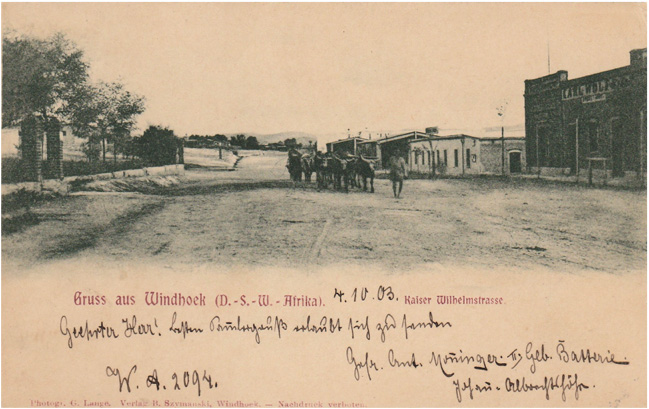 CARL WOLFF
Gruss aus Windhoek (D.-S.-W.-Afrika). 4.10.03. Kaiser Wilhelmstrasse.
Geehrter Herr! besten Sammlergruß erlaubt sich zu senden
Gefr. Ant. II Geb. Batterie.
W. A. 2094.
Johann-Albrechtshöhe.
Photogr. G. Lange, Verlag B. Szymanski, Windhoek. — Nachdruck verboten.